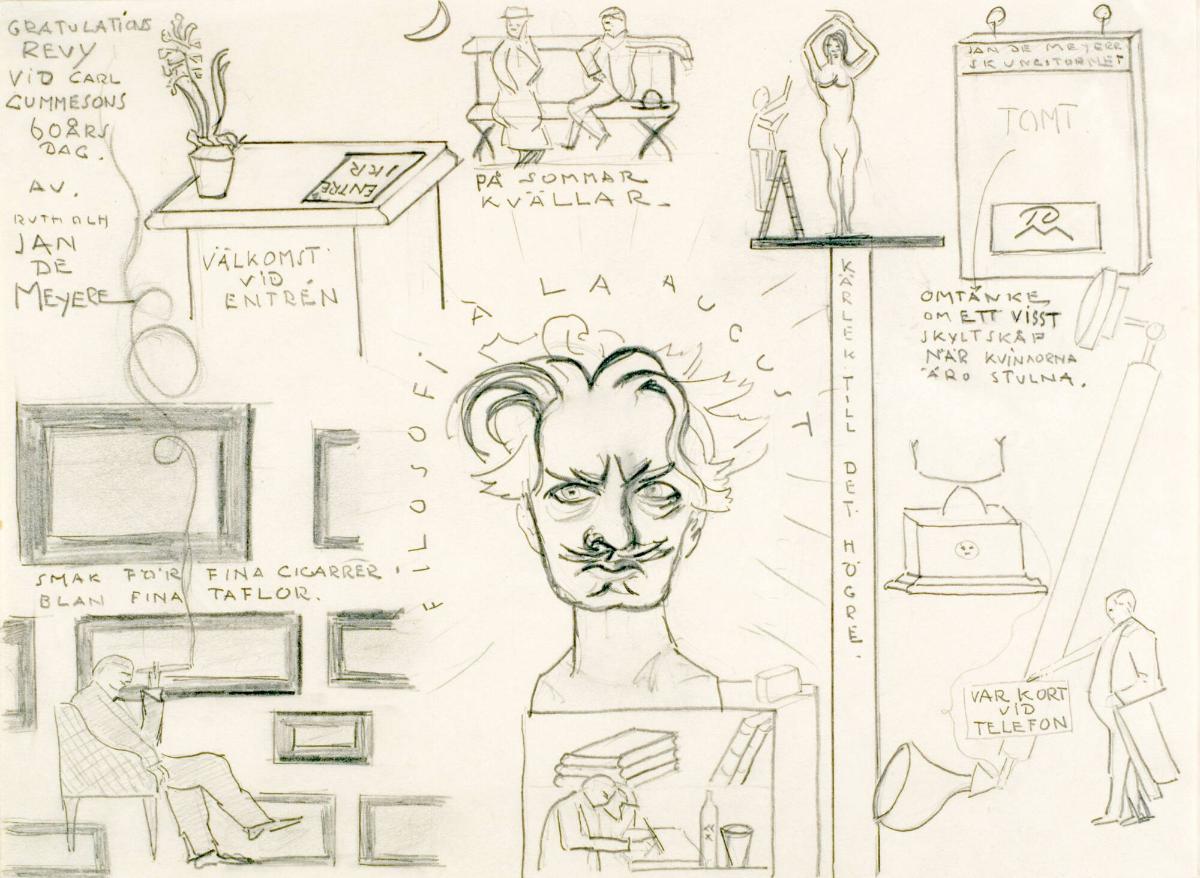 GRATULATIONS
REVY
VID CARL
GUMMESONS
60ÅRS
DAG.
AV.
RUTH OCH
JAN
DE
MEYERE
ENTRE
1 KR
VÄLKOMST
VID
ENTRÉN
PÅ SOMMAR
KVÄLLAR.
JAN DE MEYERE
TOMT
OMTÄNKE
OM ETT VISST
SKYLTSKÅP
NÄR KVINNORNA
ÄRO STULNA.
KÄRLEK TILL DET HÖGRE.
FILOSOFI.
A LA AUGUST
SMAK FÖR FINA CIGARRER
BLAN FINA TAFLOR.
VAR KORT
VID
TELEFON